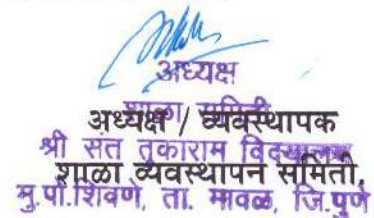 अध्यक्ष
शाळा समिती
अध्यक्ष / व्यवस्थापक
श्री संत तुकाराम विद्यालय
शाळा व्यवस्थापन समिती,
मु.पो.शिवणे, ता. मावळ, जि.पुणे